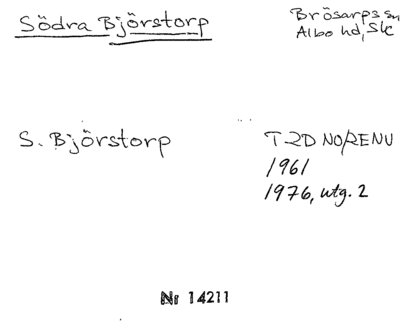 Södra Björstorp
Brösarps sn
Albo hd, Sk
S. Björstorp
T 2D NO/RENU
1961
1976, utg. 2
Nr 14211